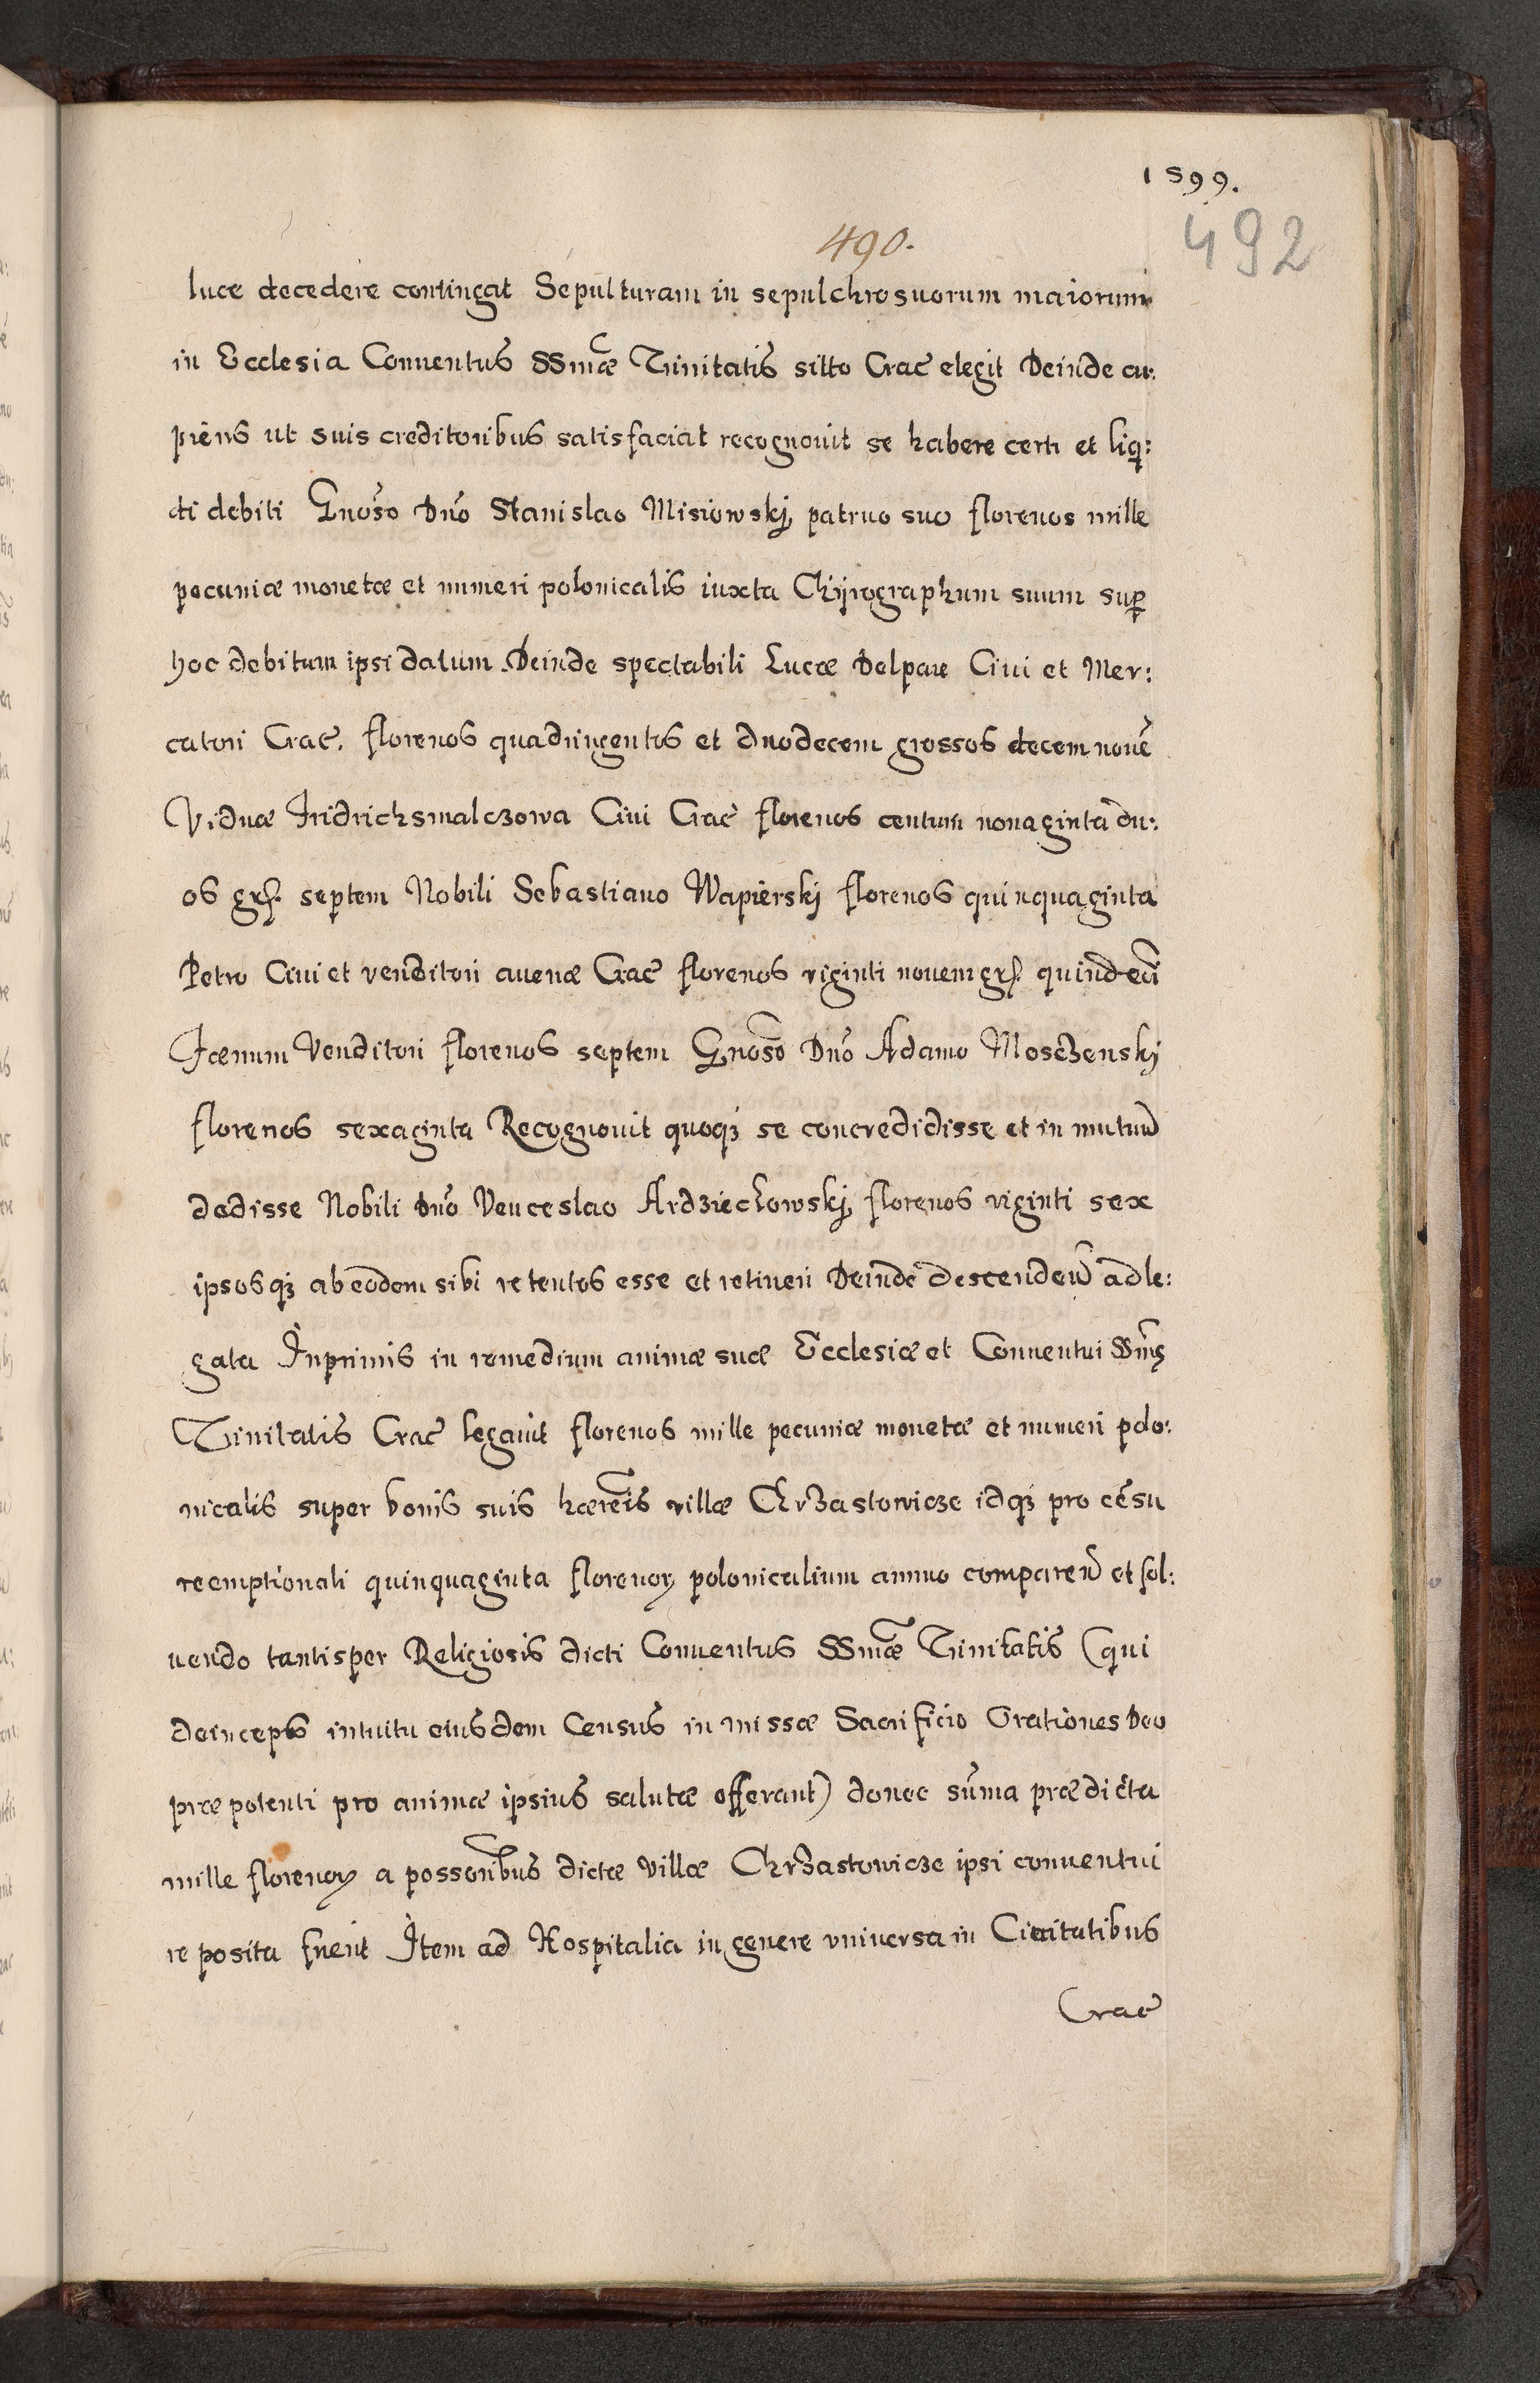 1599.
490.
492
luce decedere contingat Sepulturam in sepulchro suorum maiorum
in Ecclesia Conuentus SSmæ Trinitatis sitto Crac elegit Deinde cu:
piens ut suis creditoribus satisfaciat recognouit se habere certi et liq:
di debiti Gnoso Dno Stanislao Misiowskj patruo suo florenos mille
pecuniæ monetæ et numeri polonicalis iuxta Chijrographum suum sup
hoc debitum ipsi datum Deinde spectabili Lucæ Delpaue Ciui et Mer:
catori Crac. florenos quadringentos et duodecem grossos decem noue
Viduæ Fridrichsmalczowa Ciui Crac florenos centum nonaginta du:
os grs. septem Nobili Sebastiano Wapierskj florenos quinquaginta
Petro Ciui et venditori auenæ Crac florenos viginti nouem grs. quindeci
Fœnum Venditori florenos septem Gnoso Dno Adamo Mosczenskj
florenos sexaginta Recognouit quoq3 se concredidisse et in mutuu
dedisse Nobili Dno Venceslao Ardzieckowskj florenos viginti sex
ipsosq3 ab eodem sibi retentos esse et retineri Deinde descenden ad le:
gata Inprimis in remedium animæ suæ Ecclesiæ et Conuentui SSmę
Trinitatis Crac legauit florenos mille pecuniæ monetæ et numeri polo:
nicalis super bonis suis hæreis villæ Chrzastowicze idq3 pro cesu
reemptionali quinquaginta florenoꝝ polonicalium annuo comparen et sol:
uendo tantisper Religiosis dicti Conuentus SSmæ Trinitatis (qui
deinceps intuitu eiusdem Census in missæ Sacrificio Orationes Deo
præpotenti pro animæ ipsius salutæ offerant) donec suma prædicta
mille florenoꝝ a possoribus dictæ villæ Chrzastowicze ipsi conuentui
reposita fuent Item ad Hospitalia in genere vniuersa in Ciuitatibus
Crac